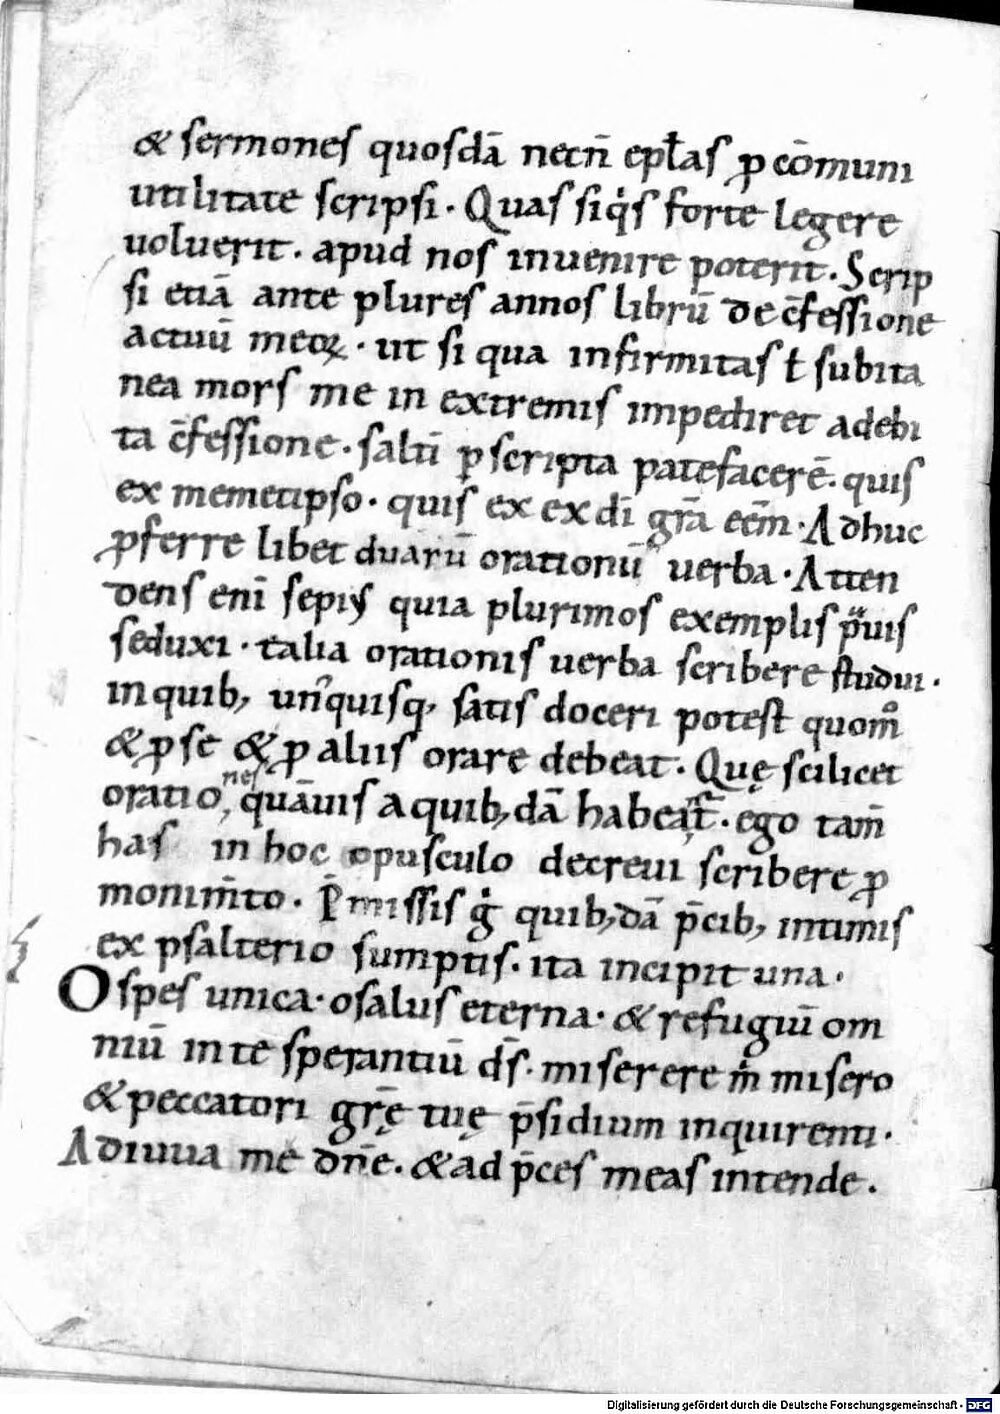 & sermones quosdā necn̄ epl̄as ꝓ cōmuni
utilitate scripsi. Quas siqͥs forte legere
uoluerit. apud nos inuenire poterit. Scrip
si etiā ante plures annos librū de c̄fessione
actuū meoꝝ. ut si qua infirmitas ł subita
nea mors me in extremis impediret a debi
ta c̄fessione. saltī ꝑ scripta patefacerē. quis
ex memetipso. quis ex ex dī grā eēm. Adhuc
ꝓferre libet duarū orationū uerba. Atten
dens enī sepiꝰ quia plurimos exemplis pᷓuis
seduxi. talia orationis uerba scribere studui.
in quib; un̓quisq; satis doceri potest quom̊
& ꝓ se & ꝓ aliis orare debeat. Quę scilicet
orationes quāuis a quib;dā habeant̄. ego tam̄
has in hoc opusculo decreui scribere ꝓ
monim̄to. P̄missis gͥ quib;dā p̄cib; intimis
ex psalterio sumptis. ita incipit una.
O spes unica. o salus eterna. & refugiū om
niū in te sperantiū ds̄. miserere m̄ misero
& peccatori gr̄ę tuę p̄sidium inquirenti.
Adiuua me dn̄e. & ad p̄ces meas intende.
Digitalisierung gefördert durch die Deutsche Forschungsgemeinschaft - DFG